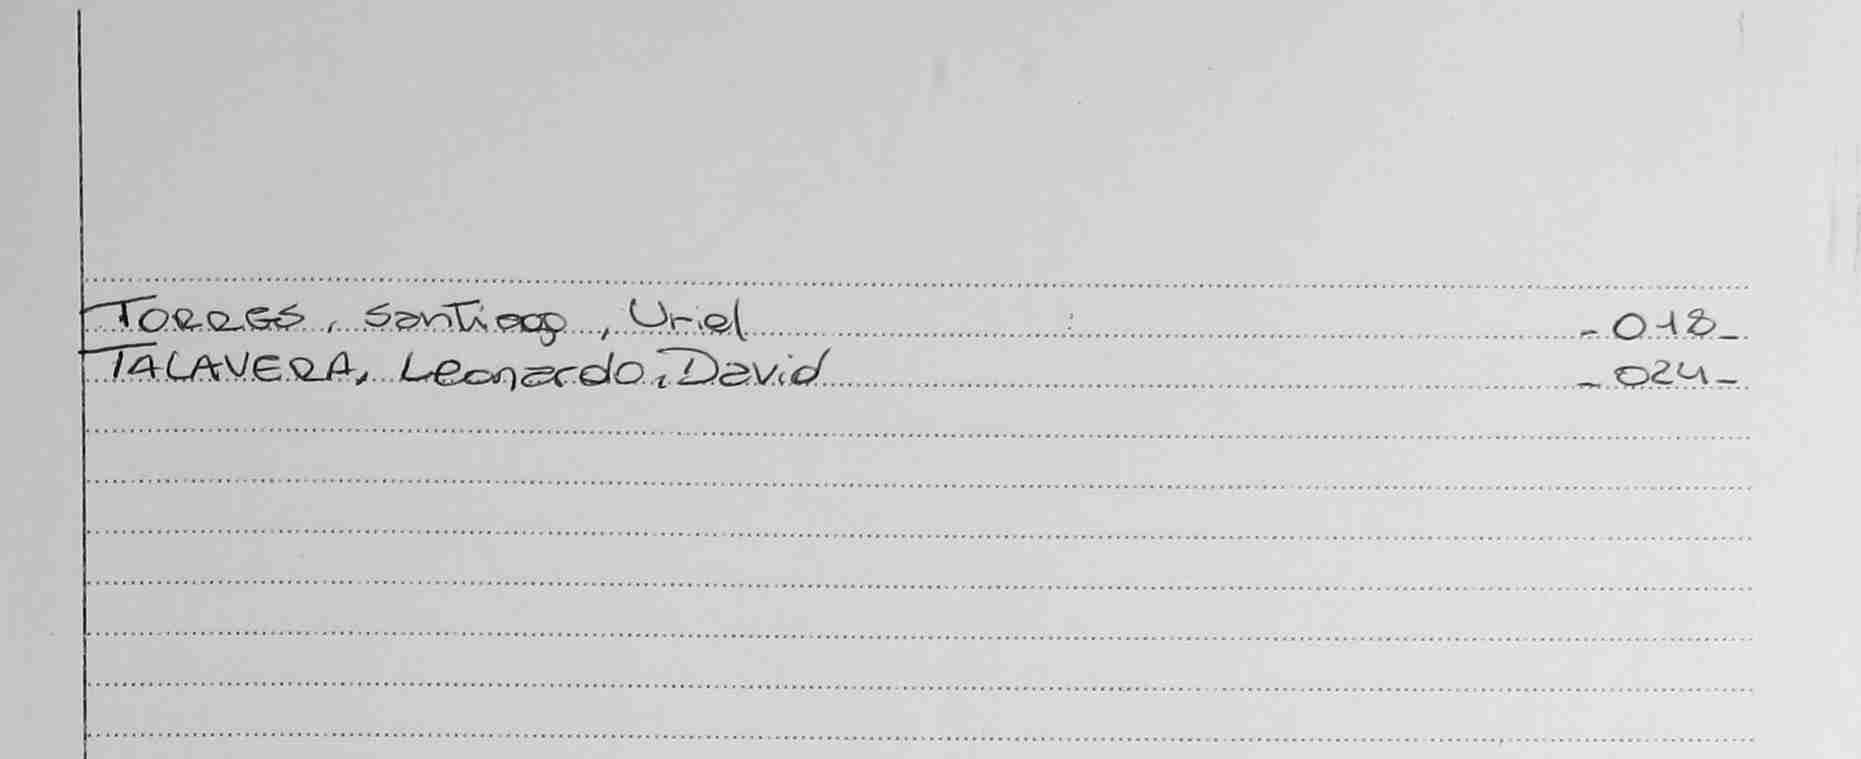 TORRES, Santiago, Uriel -018-
TALAVERA, Leonardo, David -024-